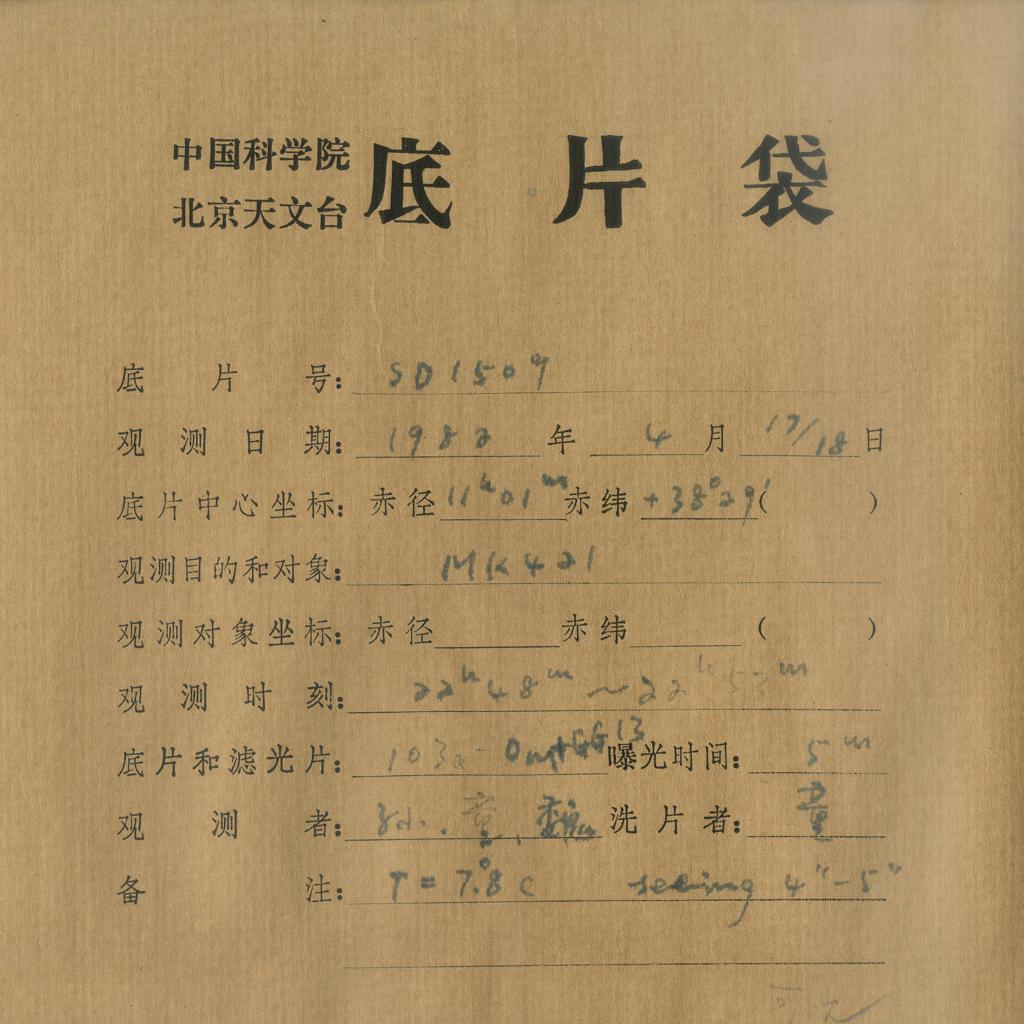 中国科学院
北京天文台
底片袋
底片号: SD1509
观测日期: 1982 年 4 月 17/18 日
底片中心坐标: 赤径 11h01m 赤纬 +38°29′ ( )
观测目的和对象: MK421
观测对象坐标: 赤径 赤纬 ( )
观测时刻: 22h48m~22h53m
底片和滤光片: 103a-O GG13 曝光时间: 5m
观测者: 孙、童、魏 洗片者: 童
备注: T=7.°8 C seeing 4″-5″